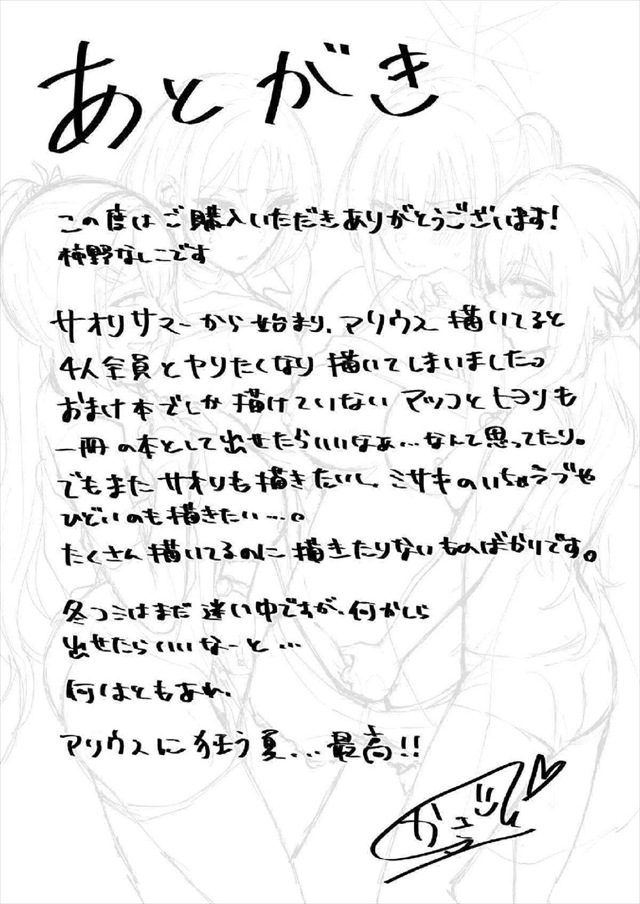 あとがき
この度はご購入いただきありがとうございます!
柿野なしこです
サオリサマーから始まり、アリウス描いてると
4人全員とヤりたくなり描いてしまいましたっ
おまけ本でしか描けていないアツコとヒヨリも
一冊の本として出せたらいいなぁ…なんて思ってたり。
でもまたサオリも描きたいし、ミサキのいちゃラブや
ひどいのも描きたい…。
たくさん描いてるのに描きたりないものばかりです。
冬コミはまだ迷い中ですが、何かしら
出せたらいいなーと…
何はともあれ、
アリウスに狂う夏…最高!!